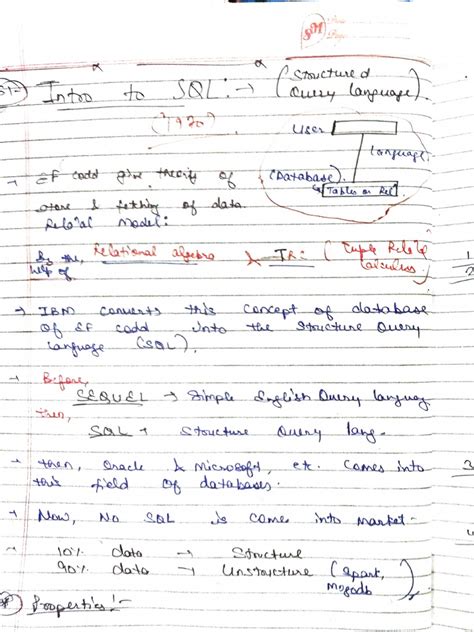 Intro to SQL :→ (Structured Query Language).
(1970)
User
Language
(Database).
Tables or Rel
→ EF codd give theory of
store & fetching of data.
Relatal Model:
By the help of Relational algebra & TR: (Tuple Relate Calculess)
→ IBM converts this concept of database
of EF codd into the Structure Query
Language (SQL).
→ Before,
SEQUEL → Simple English Query languag
then,
SQL → Structure Query lang.
→ then, Oracle & Microsoft, etc. Comes into
this field of databases.
→ Now, No SQL is come into market.
→ 10% data → Structure
90% data → Unstructure (
Properties :-